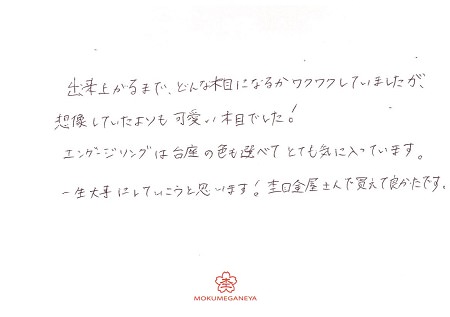 出来上がるまで、どんな木目になるかワクワクしていましたが、
想像していたよりも可愛い木目でした!
エンゲージリングは台座の色も選べてとても気に入っています。
一生大事にしていこうと思います!杢目金屋さんで買えて良かたです。
MOKUMEGANEYA